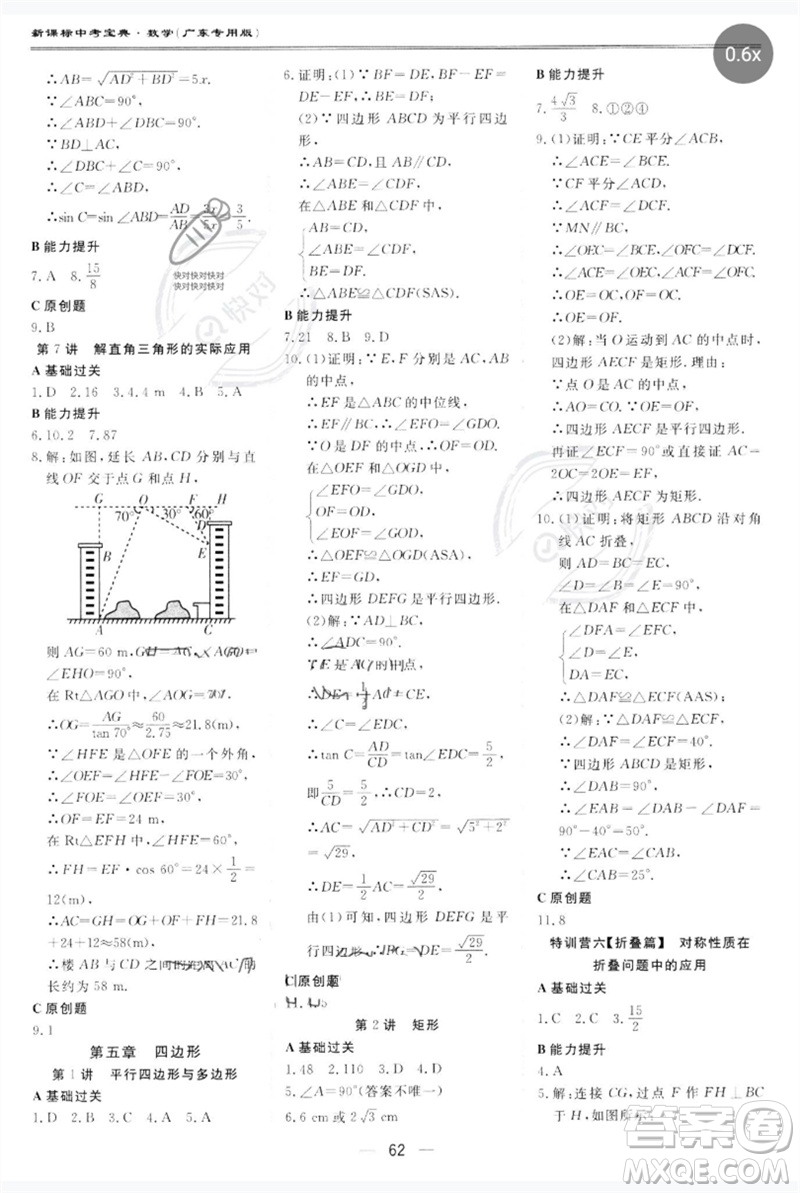 新课标中考宝典·数学(广东专用版)
0.6x
∴AB=√(AD²+BD²)=5x.
∵∠ABC=90°,
∴∠ABD+∠DBC=90°.
∵BD⊥AC,
∴∠DBC+∠C=90°.
∴∠C=∠ABD.
∴sin C=sin∠ABD=AD/AB=3x/5x=3/5.
B 能力提升
7.A 8.15/8
C 原创题
9.B
第 7 讲 解直角三角形的实际应用
A 基础过关
1.D 2.16 3.4.4 m 4.B 5.A
B 能力提升
6.10.2 7.87
8.解:如图,延长 AB,CD 分别与直
线 OF 交于点 G 和点 H,
G O F H
70° 30° 60°
B E
A C
则 AG=60 m,
∠EHO=90°.
在 Rt△AGO 中,∠AOG=
∴OG=AG/tan 70°≈60/2.75≈21.8(m).
∵∠HFE 是△OFE 的一个外角,
∴∠OEF=∠HFE-∠FOE=30°.
∴∠FOE=∠OEF=30°.
∴OF=EF=24 m.
在 Rt△EFH 中,∠HFE=60°,
∴FH=EF·cos 60°=24×1/2=
12(m).
∴AC=GH=OG+OF+FH=21.8
+24+12≈58(m).
∴楼 AB 与 CD 之间的
长约为 58 m.
C 原创题
9.1
第五章 四边形
第 1 讲 平行四边形与多边形
A 基础过关
1.D 2.D 3.B 4.A 5.A
6.证明:(1)∵BF=DE,BF-EF=
DE-EF,∴BE=DF;
(2)∵四边形 ABCD 为平行四边
形,
∴AB=CD,且 AB∥CD.
∴∠ABE=∠CDF.
在△ABE 和△CDF 中,
AB=CD,
∠ABE=∠CDF,
BE=DF,
∴△ABE≌△CDF(SAS).
B 能力提升
7.21 8.B 9.D
10.(1)证明:∵E,F 分别为 AC,BC
的中点,
∴EF 是△ABC 的中位线,
∴EF∥AB,∴∠EFO=∠GDO.
∵O 是 DF 的中点,∴OF=OD.
在△OEF 和△OGD 中,
∠EFO=∠GDO,
OF=OD,
∠EOF=∠GOD,
∴△OEF≌△OGD(ASA).
∴EF=GD.
∴四边形 DEFG 是平行四边形.
(2)解:∵AD⊥BC,
∴∠ADC=90°.
∵E 是 AC 的中点,
AC=CE,
∴∠C=∠EDC,
∴tan C=AD/CD=tan∠EDC=5/2,
即5/CD=5/2,∴CD=2,
∴AC=√(AD²+CD²)=√(5²+2²)=
√29,
∴DE=1/2AC=√29/2.
由(1)可知,四边形 DEFG 是平
行四边形,∴ =DE=√29/2.
C 原创题
第 2 讲 矩形
A 基础过关
1.48 2.10 3.C 4.D
5.∠A=90°(答案不唯一)
6.6 cm 或 2√3 cm
B 能力提升
7.4√3/3 8.①②④
9.(1)证明:∵CE 平分∠ACB,
∴∠ACE=∠BCE.
∵CF 平分∠ACD,
∴∠ACF=∠DCF.
∵MN∥BC,
∴∠OEC=∠BCE,∠OFC=∠DCF.
∴∠ACE=∠OEC,∠ACF=∠OFC.
∴OE=OC,OF=OC.
∴OE=OF.
(2)解:当 O 运动到 AC 中点时,四
边形 AECF 是矩形.理由:
∵点 O 是 AC 的中点,
∴AO=CO.
∵OE=OF.
∴四边形 AECF 是平行四边形.
再证∠ECF=90°或直接证 AC=
2OC=2OE=EF.
∴四边形 AECF 为矩形.
10.(1)证明:将矩形 ABCD 沿对角
线 AC 折叠,
则 AD=BC=EC,
∠D=∠B=∠E=90°.
在△DAF 和△ECF 中,
∠DFA=∠EFC,
∠D=∠E,
DA=EC,
∴△DAF≌△ECF(AAS);
(2)解:∵△DAF≌△ECF,
∴∠DAF=∠ECF=40°.
∵∠DAB=90°,
∴∠EAB=∠DAB-∠DAF=
90°-40°=50°.
∵∠EAC=∠CAB,
∴∠CAB=25°.
C 原创题
11.8
特训营六【折叠篇】 对称性质在
折叠问题中的应用
A 基础过关
1.C 2.C 3.15/2
B 能力提升
4.C
5.解:连接 CG,过点 F 作 FH⊥BC
于 H,如图所示.
62
快对快对快对
快对快对快对
快对
答案圈
MXQE.COM